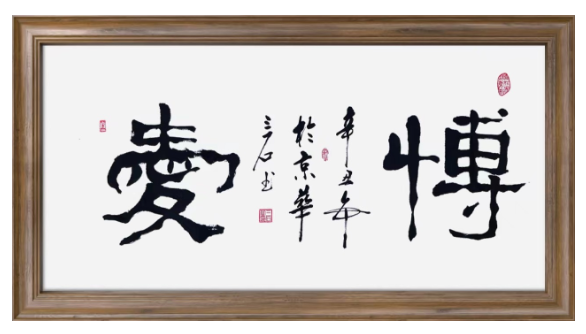 博
辛丑年
於京華
三石书
愛